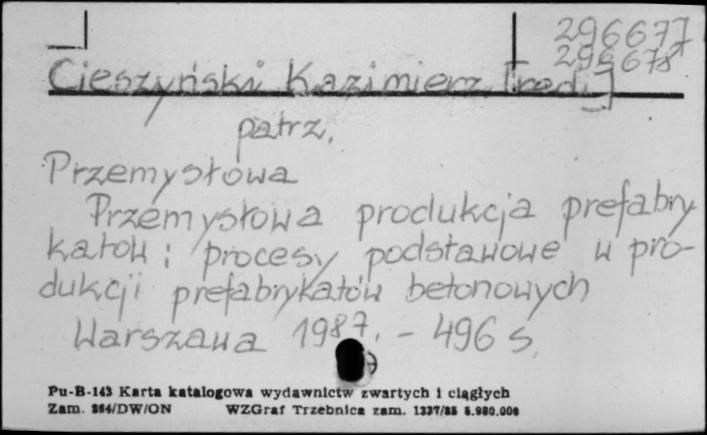 296677
296678
Cieszyński Kazimierz [red.]
patrz.
Przemysłowa
Przemysłowa produkcja prefabry-
katów : procesy podstawowe w pro-
dukcji prefabrykatów betonowych
Warszawa 1987. - 496 s.
Pu-B-143 Karta katalogowa wydawnictw zwartych i ciągłych
Zam. 864/DW/ON WZGraf Trzebnica zam. 1337/85 5.980.000